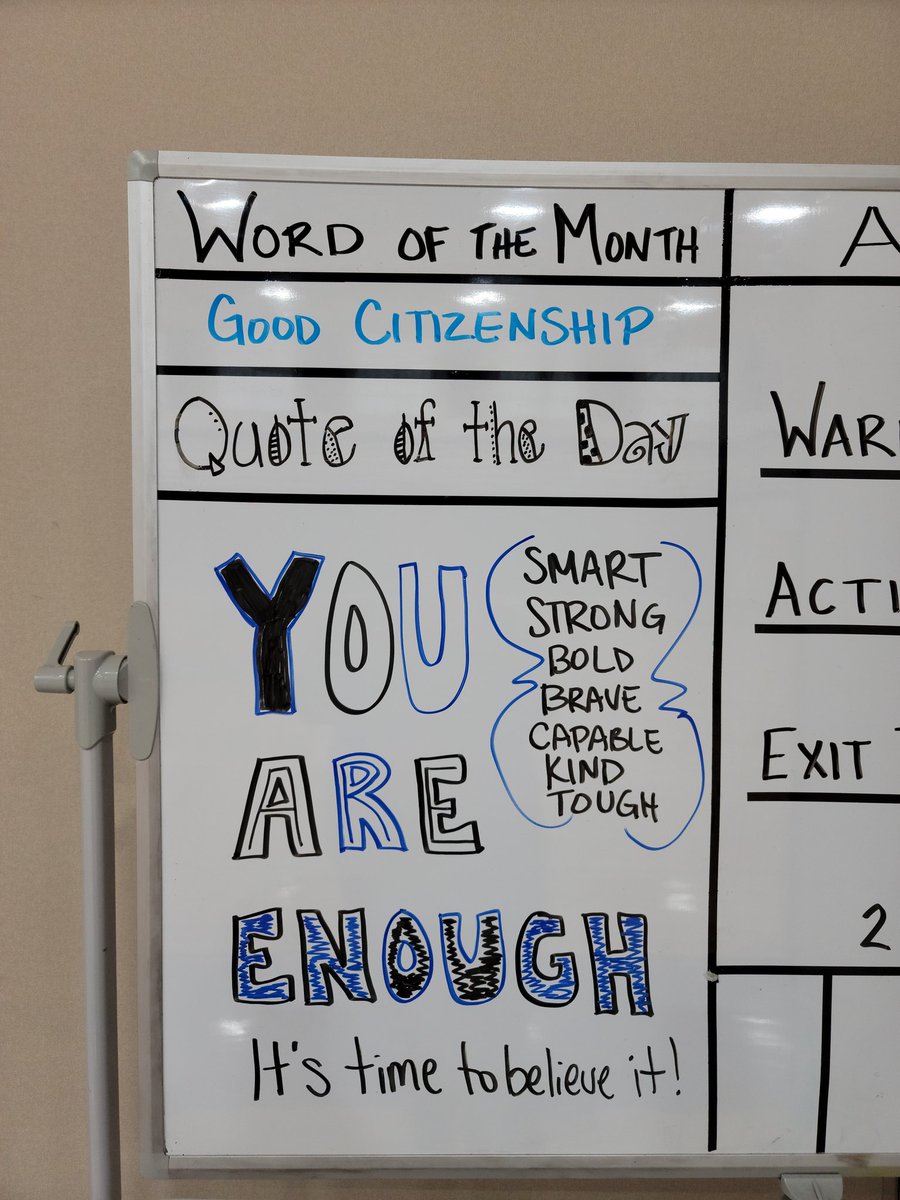 WORD OF THE MONTH
GOOD CITIZENSHIP
Quote of the Day
YOU
SMART
STRONG
BOLD
BRAVE
CAPABLE
KIND
TOUGH
ARE
ENOUGH
It's time to believe it!
A
WAR
ACTI
EXIT
2